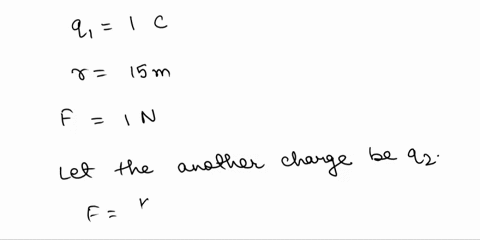 q₁ = 1 C
r = 15 m
F = 1 N
Let the another charge be q₂.
F =